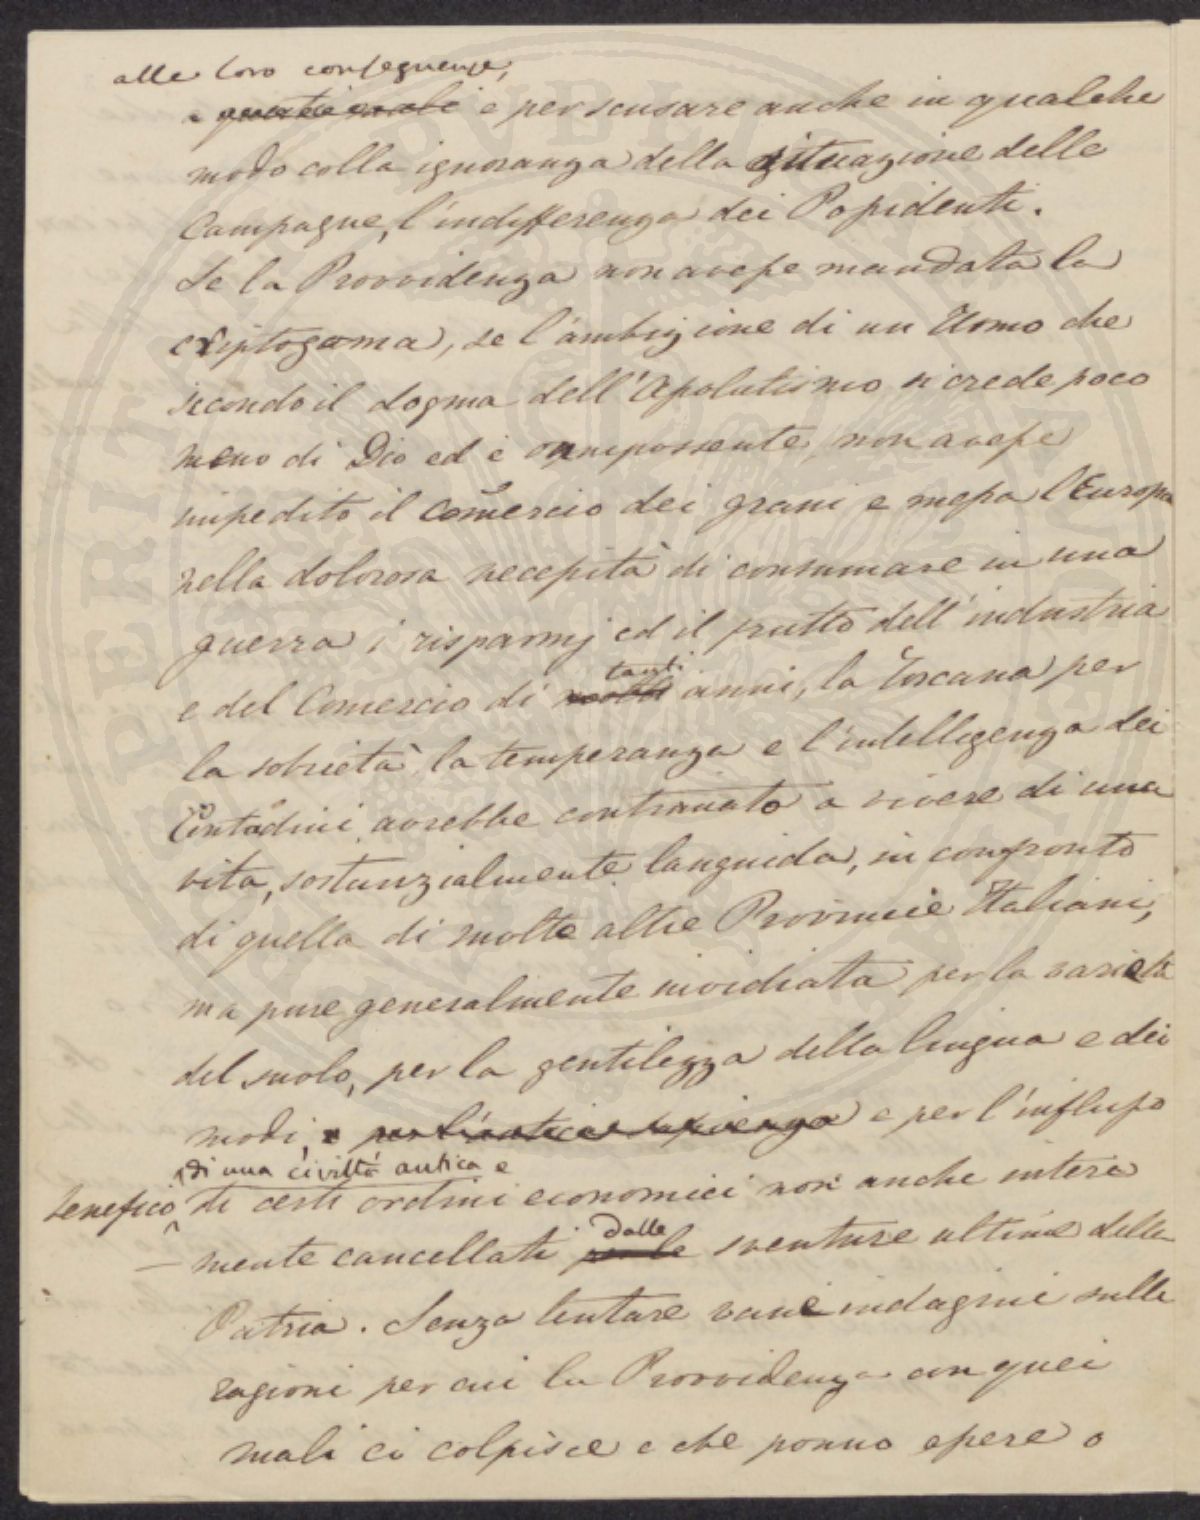 alle loro conseguenze,
e per scusare anche in qualche
modo colla ignoranza della situazione delle
Campagne, l'indifferenza dei Possidenti.
Se la Provvidenza non avesse mandata la
criptogama, se l'ambizione di un Uomo che
secondo il dogma dell'Assolutismo si crede poco
meno di Dio ed è onnipossente, non avesse
impedito il Comercio dei grani e messa l'Europa
nella dolorosa necessità di consumare in una
guerra i risparmj ed il frutto dell'industria
tanti
e del Comercio di molti anni, la Toscana per
la sobrietà, la temperanza e l'intelligenza dei
Contadini avrebbe continuato a vivere di una
vita, sostanzialmente languida, in confronto
di quella di molte altre Provincie Italiani,
ma pure generalmente invidiata per la varietà
del suolo, per la gentilezza della lingua e dei
modi, e per l'antica sapienza e per l'influsso
di una civiltà antica e
benefico di certi ordini economici non anche intera
dalle
mente cancellati per le sventure ultime della
Patria. Senza tentare vane indagini sulle
ragioni per cui la Provvidenza con quei
mali ci colpisce e che ponno essere o
PERITAL PUBLI